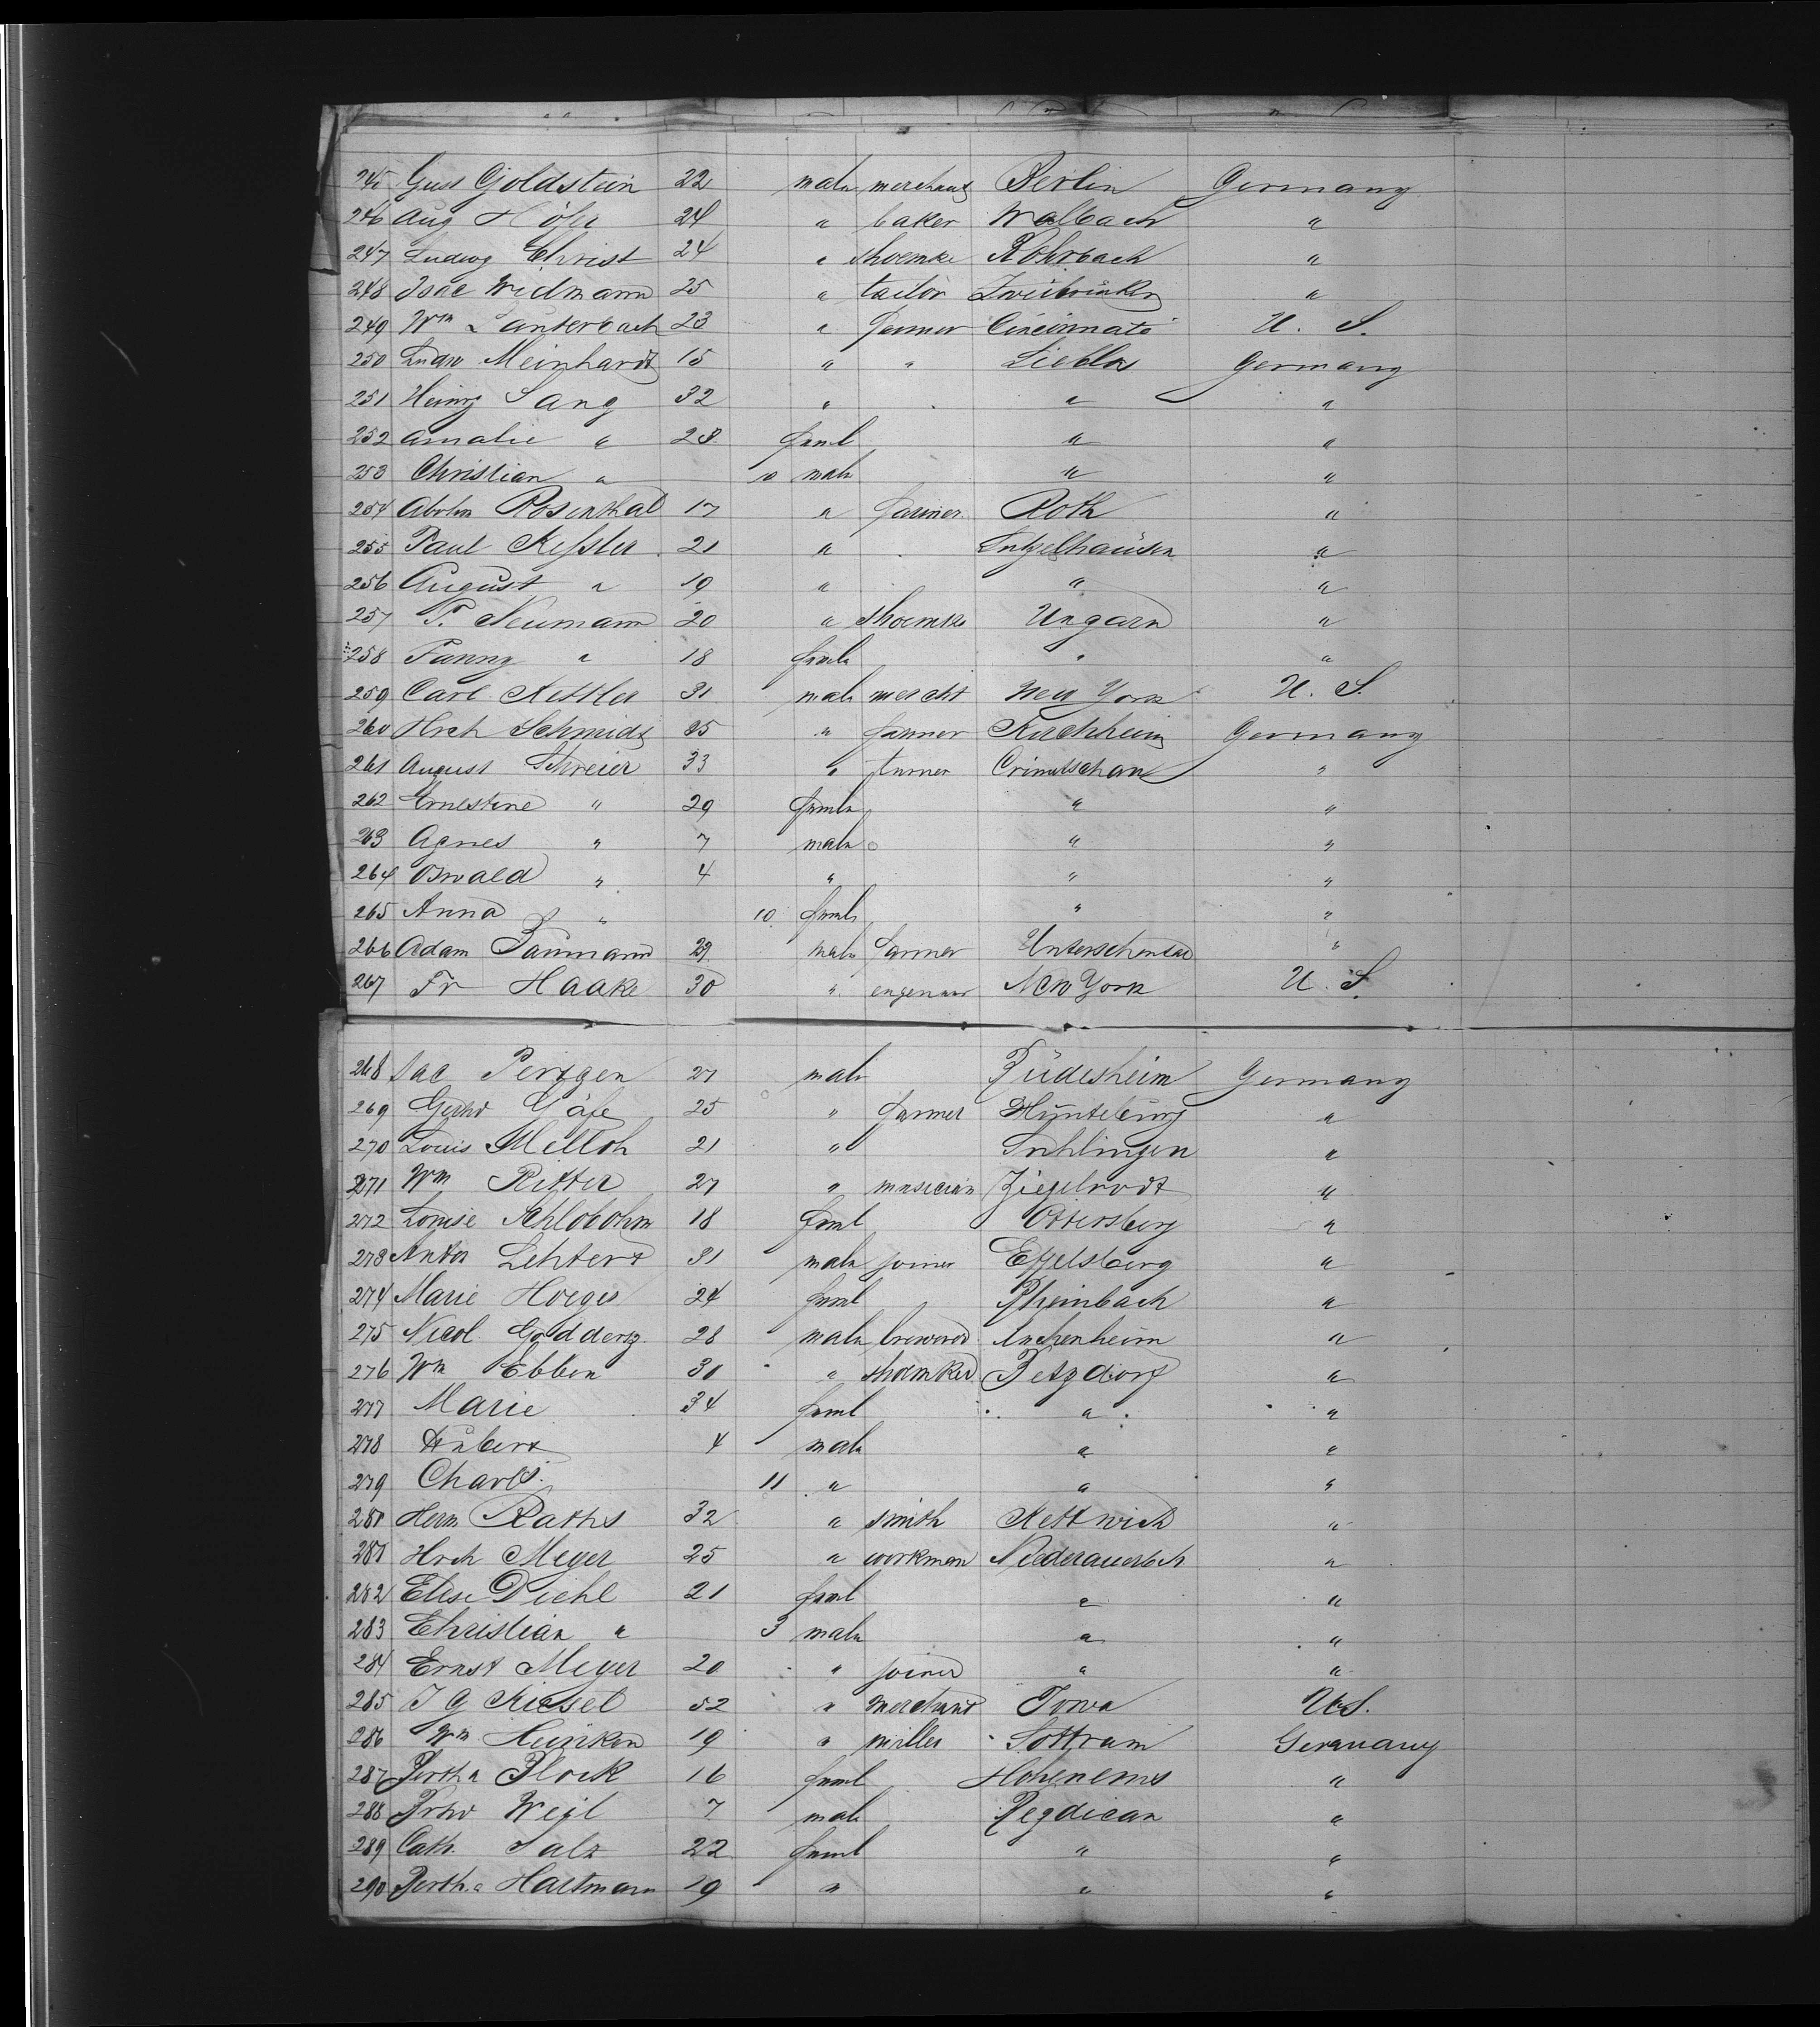 245 Gust Goldstein 22 male merchant Berlin Germany
246 Aug Höfer 24 " baker Walbach "
247 Ludwig Christ 24 " shoemkr Rohrbach "
248 Isac Widmann 25 " tailor Zweibrücken "
249 Wm Lauterbach 23 " farmer Cincinnati U. S.
250 Ludw Meinhardt 15 " " Lieblos Germany
251 Heinr Lang 32 " " "
252 Amalie " 28 feml " "
253 Christian " 10 male " "
254 Abrhm Rosenthal 17 " farmer Roth "
255 Paul Keßler 21 " Lützelhausen "
256 August " 19 " " "
257 F. Neumann 20 " shoemkr Ungarn "
258 Fanny " 18 fmle " "
259 Carl Kettler 31 male mercht New York U. S.
260 Hrch Schmidt 25 " farmer Kirchheim Germany
261 August Schreier 33 " turner Crimitschau "
262 Ernestine " 29 femle " "
263 Agnes " 7 male " "
264 Oswald " 4 " " "
265 Anna " 10 femle " "
266 Adam Baumann 29 male farmer "
267 Fr Haake 30 " engenier New York U. S.
268 Jac 27 male Rüdesheim Germany
269 Gerhd 25 " farmer Hunteburg "
270 Louis 21 " "
271 Wm Ritter 27 " musician Ziegelrodt "
272 Louise Schlobohm 18 feml Ottersberg "
273 Anton Lehtert 31 male joiner Effelsberg "
274 Marie Hoeges 24 feml Rheinbach "
275 Nicol Goddertz 28 male brewerer "
276 Wm Ebben 30 " shoemker Betzdorf "
277 Marie 34 feml " "
278 Hubert 4 male " "
279 Charls 11 " " "
280 Herm Raths 32 " smith Kettwich "
281 Hrch Meyer 25 " workman Niederauerbch "
282 Elise Diehl 21 feml " "
283 Christian " 3 male " "
284 Ernst Meyer 20 " joiner " "
285 J G Kiesel 52 " merchant Iowa U.S.
286 Wm Heinken 19 " miller Sottrum Germany
287 Bertha Block 16 feml Hohenems "
288 Weil 7 male "
289 Cath. Salz 22 feml " "
290 Bertha Hartmann 19 " " "